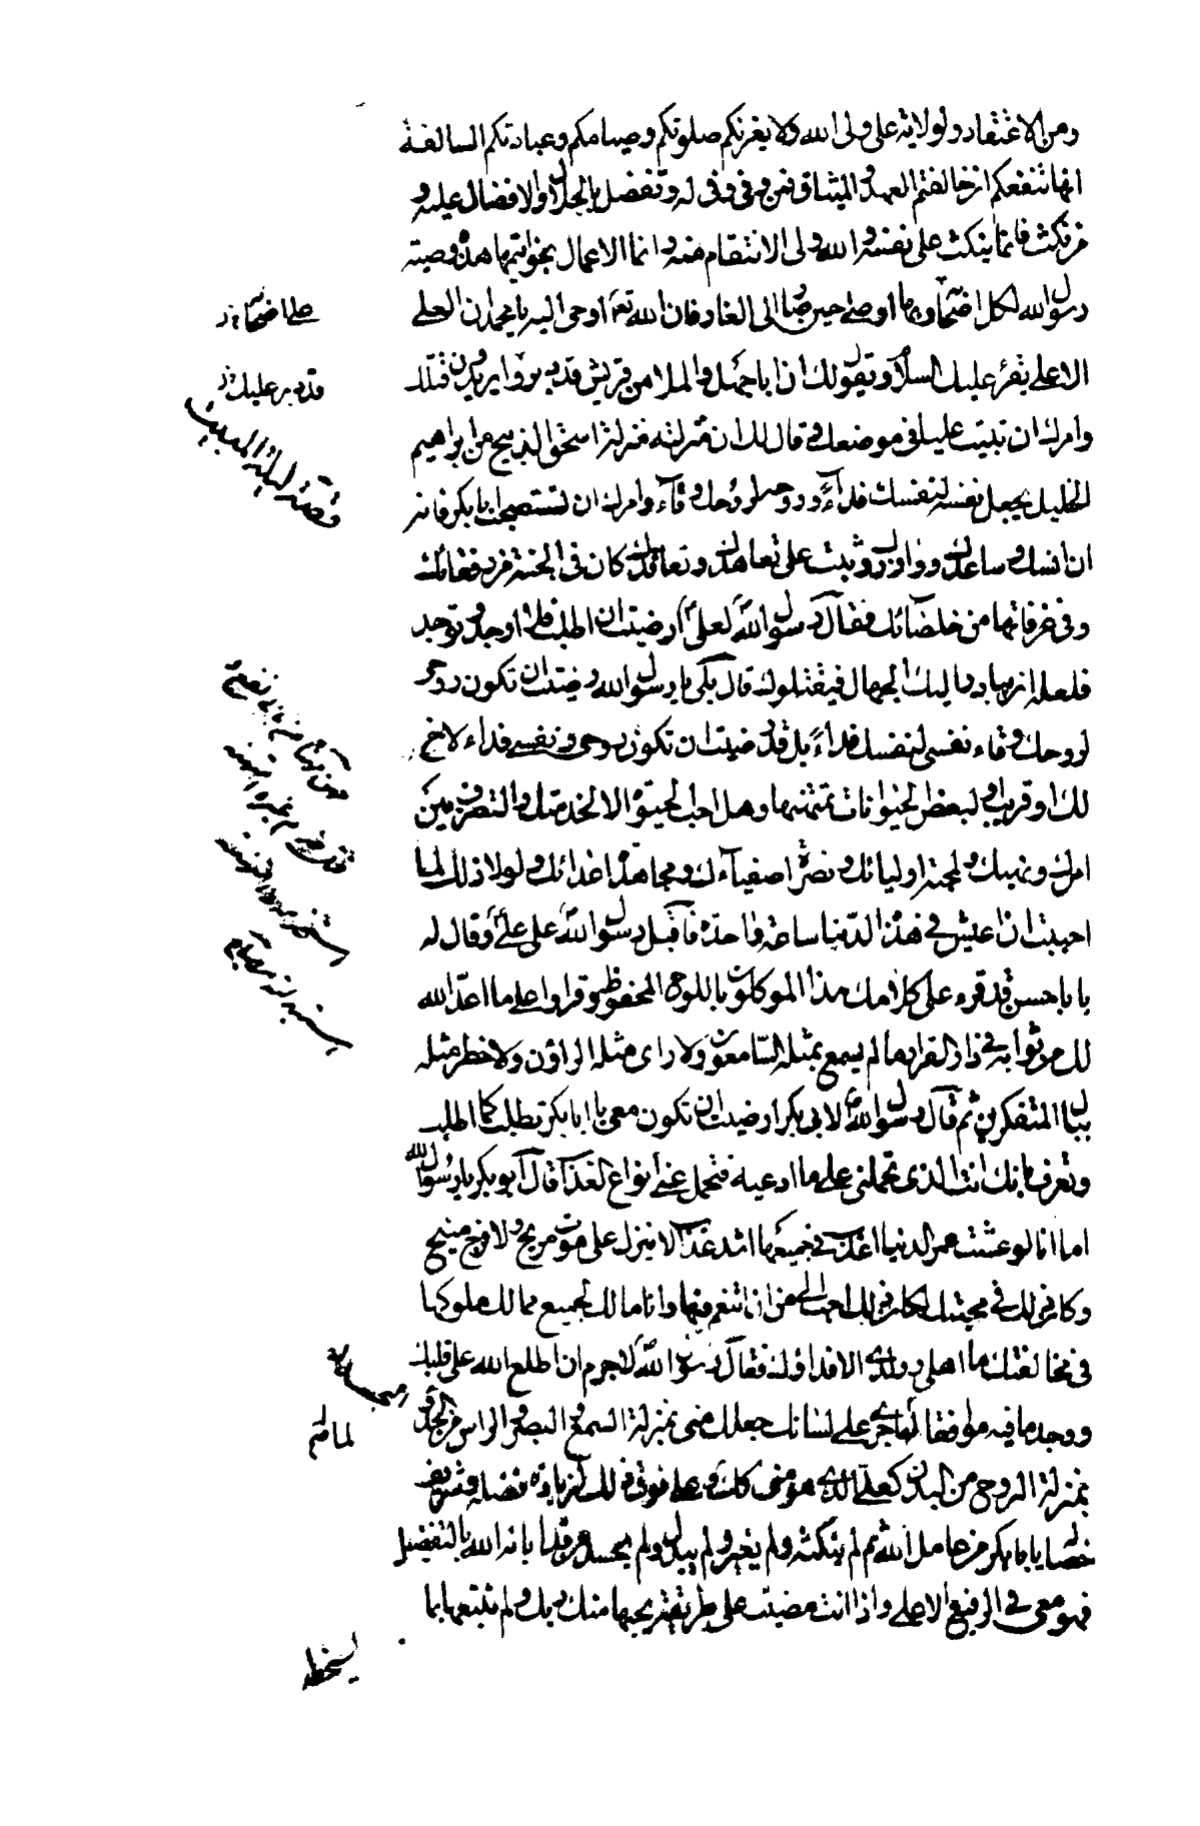 ومن الاعتقاد ولولاية علي ولي الله ولا يغرنكم صلوتكم وصيامكم وعبادتكم السالفة
انها تنفعكم ان خالفتم العهد والميثاق فمن وفى وفى له وتفضل بالجلال والافضال عليه و
من نكث فانما ينكث على نفسه والله ولى الانتقام منه وانما الاعمال بخواتيمها هذه وصية
رسول الله لكل اصحابه وبها اوصى حين صار الى الغار فان الله تعا اوحى اليه يا محمد ان العلى
الاعلى يقرء عليك السلام ويقول لك ان ابا جهل والملا من قريش قد دبروا يريدون قتلك
وامرك ان تبيت عليا فى موضعك وقال لك ان منزلته منزلة اسحق الذبيح من ابراهيم
الخليل يجعل نفسه لنفسك فداء وروحه لروحك وقاء وامرك ان تستصحب ابا بكر فانه
ان انسك وساعدك ووازرك وثبت على تعاهدك وتعاقدك كان فى الجنة من رفقائك
وفى غرفاتها من خلصائك فقال رسول الله لعلي ارضيت ان اطلب فلا اوجد وتوجد
فلعله ان يبادر اليك الجهال فيقتلوك قال بلى يا رسول الله رضيت ان تكون روحى
لروحك وقاء ونفسى لنفسك فداء بل قد رضيت ان تكون روحى ونفسى فداء لاخ
لك او قريب او لبعض الحيوانات تمتهنها وهل احب الحيوة الا لخدمتك والتصرف بين
امرك ونهيك ولمحبة اوليائك ونصرة اصفياءك ومجاهدة اعدائك ولولا ذلك لما
احببت ان اعيش فى هذه الدنيا ساعة واحدة فاقبل رسول الله على علي وقال له
يا با حسن قد قرء على كلامك هذا الموكلون باللوح المحفوظ وقراوا على ما اعد الله
لك من ثوابه فى دار القرار ما لم يسمع بمثله السامعون ولا راى مثله الراؤن ولا خطر مثله
ببال المتفكرين ثم قال رسول الله لابى بكر ارضيت ان تكون معى يا ابا بكر تطلب كما اطلب
وتعرف بانك انت الذى تحملنى على ما ادعيه فتحمل عنى انواع العذاب قال ابو بكر يا رسول الله
اما انا لو عشت عمر الدنيا اعذب فى جميعها اشد عذاب لا ينزل على موت مريح ولا فرج متيح
وكان ذلك فى محبتك لكان ذلك احب الى من ان اتنعم فيها وانا مالك لجميع ممالك ملوكها
فى مخالفتك ما اهلى وولدى الا فداؤك فقال رسول الله لا جرم ان اطلع الله على قلبك
ووجد ما فيه موافقا لما جرى على لسانك جعلك منى بمنزلة السمع والبصر والراس من الجسد و
بمنزلة الروح من البدن كعلي الذى هو منى كذلك وعلى فوق ذلك لزيادة فضله وشريف
خصاله يا با بكر من عاهد الله ثم لم ينكث ولم يغير ولم يبدل ولم يحسد من قد ابانه الله بالتفضيل
فهو معى فى الرفيع الاعلى واذا انت مضيت على طريقة يحبها منك ربك ولم تتبعها بما
يسخطه
قد دبر عليك
قصة ليلة المبيت